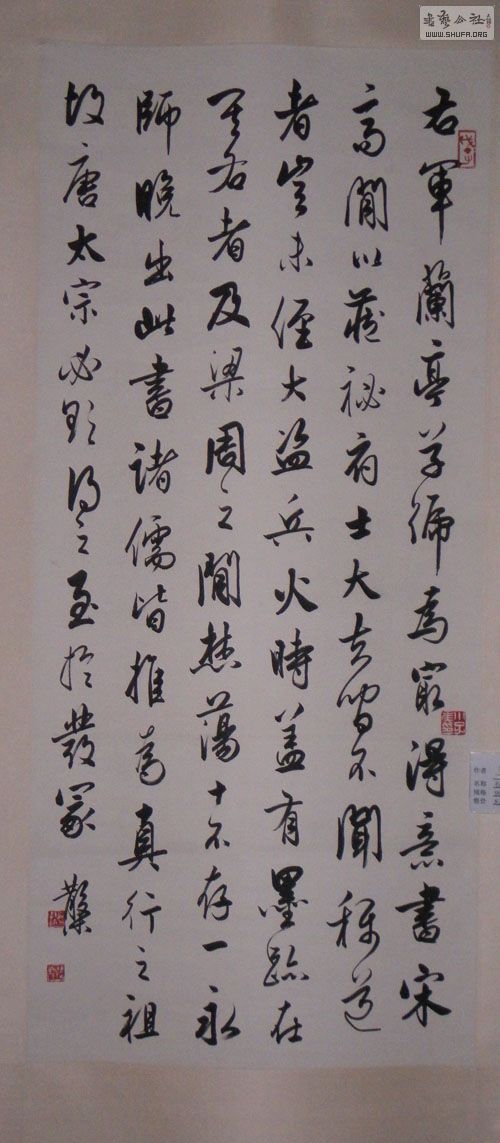 書藝公社
WWW.SHUFA.ORG
右軍蘭亭草號為最得意書宋
高間以藏祕府士大夫間不聞稱道
者豈未經大盜兵火時蓋有墨跡在
其右者及梁周之間焚蕩十不存一永
師晚出此書諸儒皆推為真行之祖
故唐太宗必欲得之至於發冢
作者
名称
规格